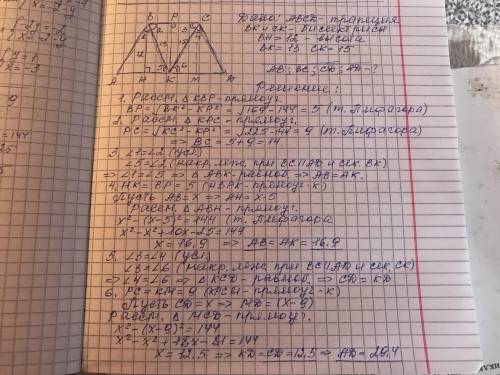 B P C
A H K M D
Дано: ABCD - трапеция
BK и CK - биссектрисы
BH = 12 - высота
BK = 13 CK = 15
AB; BC; CD; AD - ?
Решение:
1. Рассм. △ KBP - прямоуг.
BP = √BK² - KP² = √169-144 = 5 (т. Пифагора)
2. Рассм. △ KPC - прямоуг.
PC = √KC² - KP² = √225-144 = 9 (т. Пифагора)
=> BC = 5+9 = 14
3. ∠1 = ∠2 (усл)
∠5 = ∠2 (накр. леж. при BC||AD и сек. BK)
=> ∠1 = ∠5 => △ ABK - равноб. => AB = AK.
4. HK = BP = 5 (HBPK - прямоуг-к)
Пусть AB = x => AH = x-5
Рассм. △ ABH - прямоуг.
x² - (x-5)² = 144 (т. Пифагора
x² - x² + 10x - 25 = 144
x = 16,9 => AB = AK = 16,9
5. ∠3 = ∠4 (усл)
∠3 = ∠6 (накр. леж. при BC||AD и сек. CK)
=> ∠4 = ∠6 => △ KCD - равноб. => CD = KD
6. PC = KM = 9 (KPCM - прямоуг-к)
Пусть CD = x => MD = (x-9)
Рассм. △ MCD - прямоуг.
x² - (x-9)² = 144
x² - x² + 18x - 81 = 144
x = 12,5 => KD = CD = 12,5 => AD = 29,4